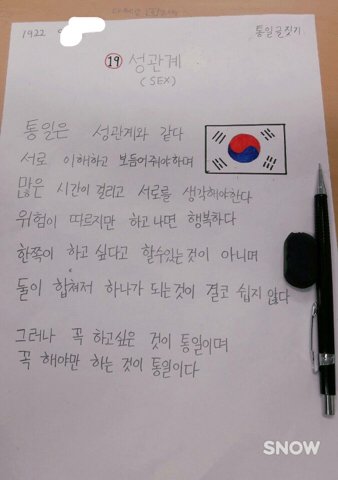 1922
통일글짓기
19 성관계
(SEX)
통일은 성관계와 같다
서로 이해하고 보듬어줘야하며
많은 시간이 걸리고 서로를 생각해야한다
위험이 따르지만 하고나면 행복하다
한쪽이 하고 싶다고 할수있는것이 아니며
둘이 합쳐져 하나가 되는것이 결코 쉽지 않다
그러나 꼭 하고싶은 것이 통일이며
꼭 해야만 하는 것이 통일이다
SNOW